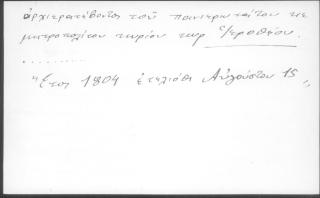 ἀρχιερατεύβοντος τοῦ πανιερωτάτου κε
μητροπολίτου κυρίου κυρ Ἱεροθέου.
..........
"Ἔτος 1804 ἐτελιόθι Αὐγούστου 15,,